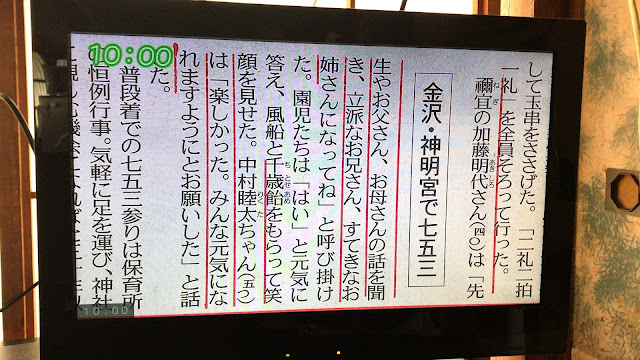 10:00
して玉串をささげた。「二礼二拍
一礼」を全員そろって行った。
禰宜の加藤明代さん(四〇)は「先
ねぎ
あきしろ
金沢・神明宮で七五三
生やお父さん、お母さんの話を聞
き、立派なお兄さん、すてきなお
姉さんになってね」と呼び掛け
た。園児たちは「はい」と元気に
答え、風船と千歳飴をもらって笑
ちとせあめ
顔を見せた。中村睦太ちゃん(五つ)
は「楽しかった。みんな元気にな
れますようにとお願いした」と話
た。
普段着での七五三参りは保育所
恒例行事。気軽に足を運び、神社
10:00